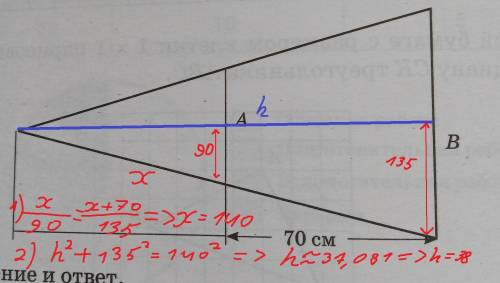 ой бумаге с размером клетки 1 × 1
диану CK треугольника
h
A
B
90
135
x
1) x/90 = x+70/135 => x = 140
70 см
2) h² + 135² = 140² => h ≈ 37,081 => h = 38
ение и ответ.